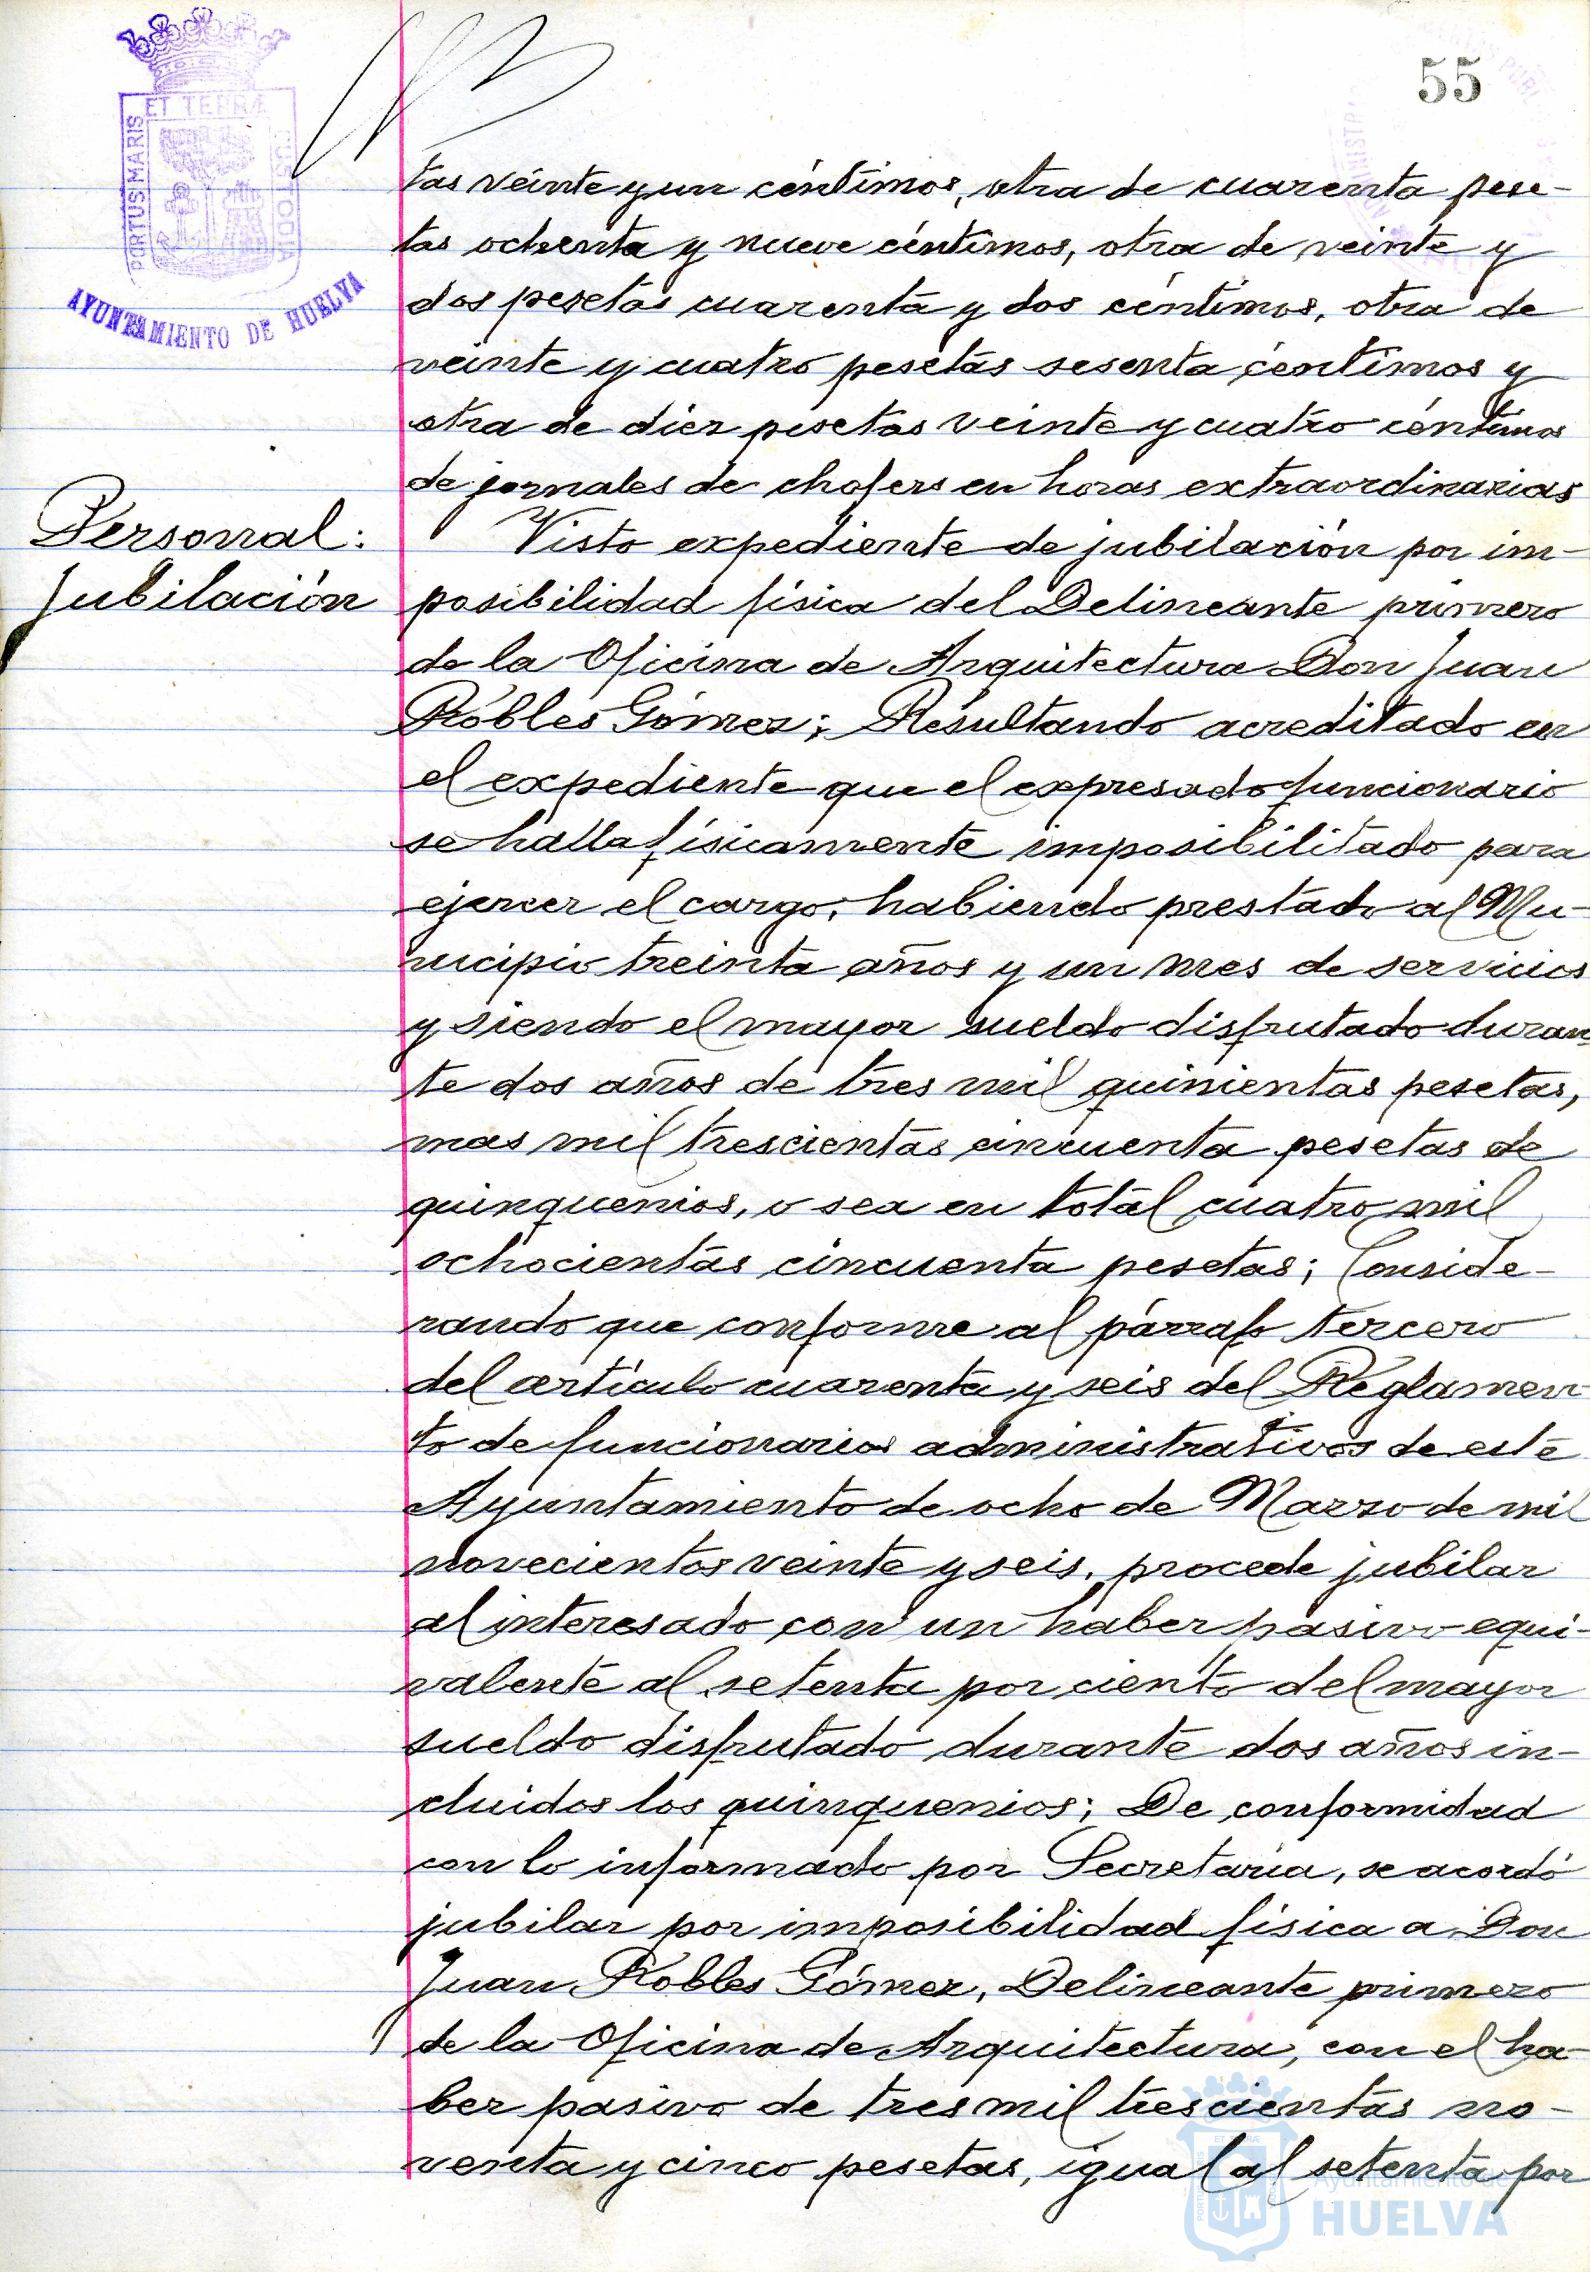 55
ET TERRÆ
PORTUS MARIS
CUSTODIA
AYUNTAMIENTO DE HUELVA
tas veinte y un céntimos, otra de cuarenta pese-
tas ochenta y nueve céntimos, otra de veinte y
dos pesetas cuarenta y dos céntimos, otra de
veinte y cuatro pesetas sesenta céntimos y
otra de diez pesetas veinte y cuatro céntimos
de jornales de chofers en horas extraordinarias
Personal:
Jubilación
Visto expediente de jubilación por im-
posibilidad física del Delineante primero
de la Oficina de Arquitectura Don Juan
Robles Gómez; Resultando acreditado en
el expediente que el expresado funcionario
se halla físicamente imposibilitado para
ejercer el cargo, habiendo prestado al Mu-
nicipio treinta años y un mes de servicios
y siendo el mayor sueldo disfrutado duran
te dos años de tres mil quinientas pesetas,
mas mil trescientas cincuenta pesetas de
quinquenios, o sea en total cuatro mil
ochocientas cincuenta pesetas; Conside-
rando que conforme al párrafo tercero
del artículo cuarenta y seis del Reglamen
to de funcionarios administrativos de este
Ayuntamiento de ocho de Marzo de mil
novecientos veinte y seis, procede jubilar
al interesado con un haber pasivo equi-
valente al setenta por ciento del mayor
sueldo disfrutado durante dos años in-
cluidos los quinquenios; De conformidad
con lo informado por Secretaría, se acordó
jubilar por imposibilidad física a Don
Juan Robles Gómez, Delineante primero
de la Oficina de Arquitectura, con el ha-
ber pasivo de tres mil trescientas no-
venta y cinco pesetas, igual al setenta por
Ayuntamiento de
HUELVA